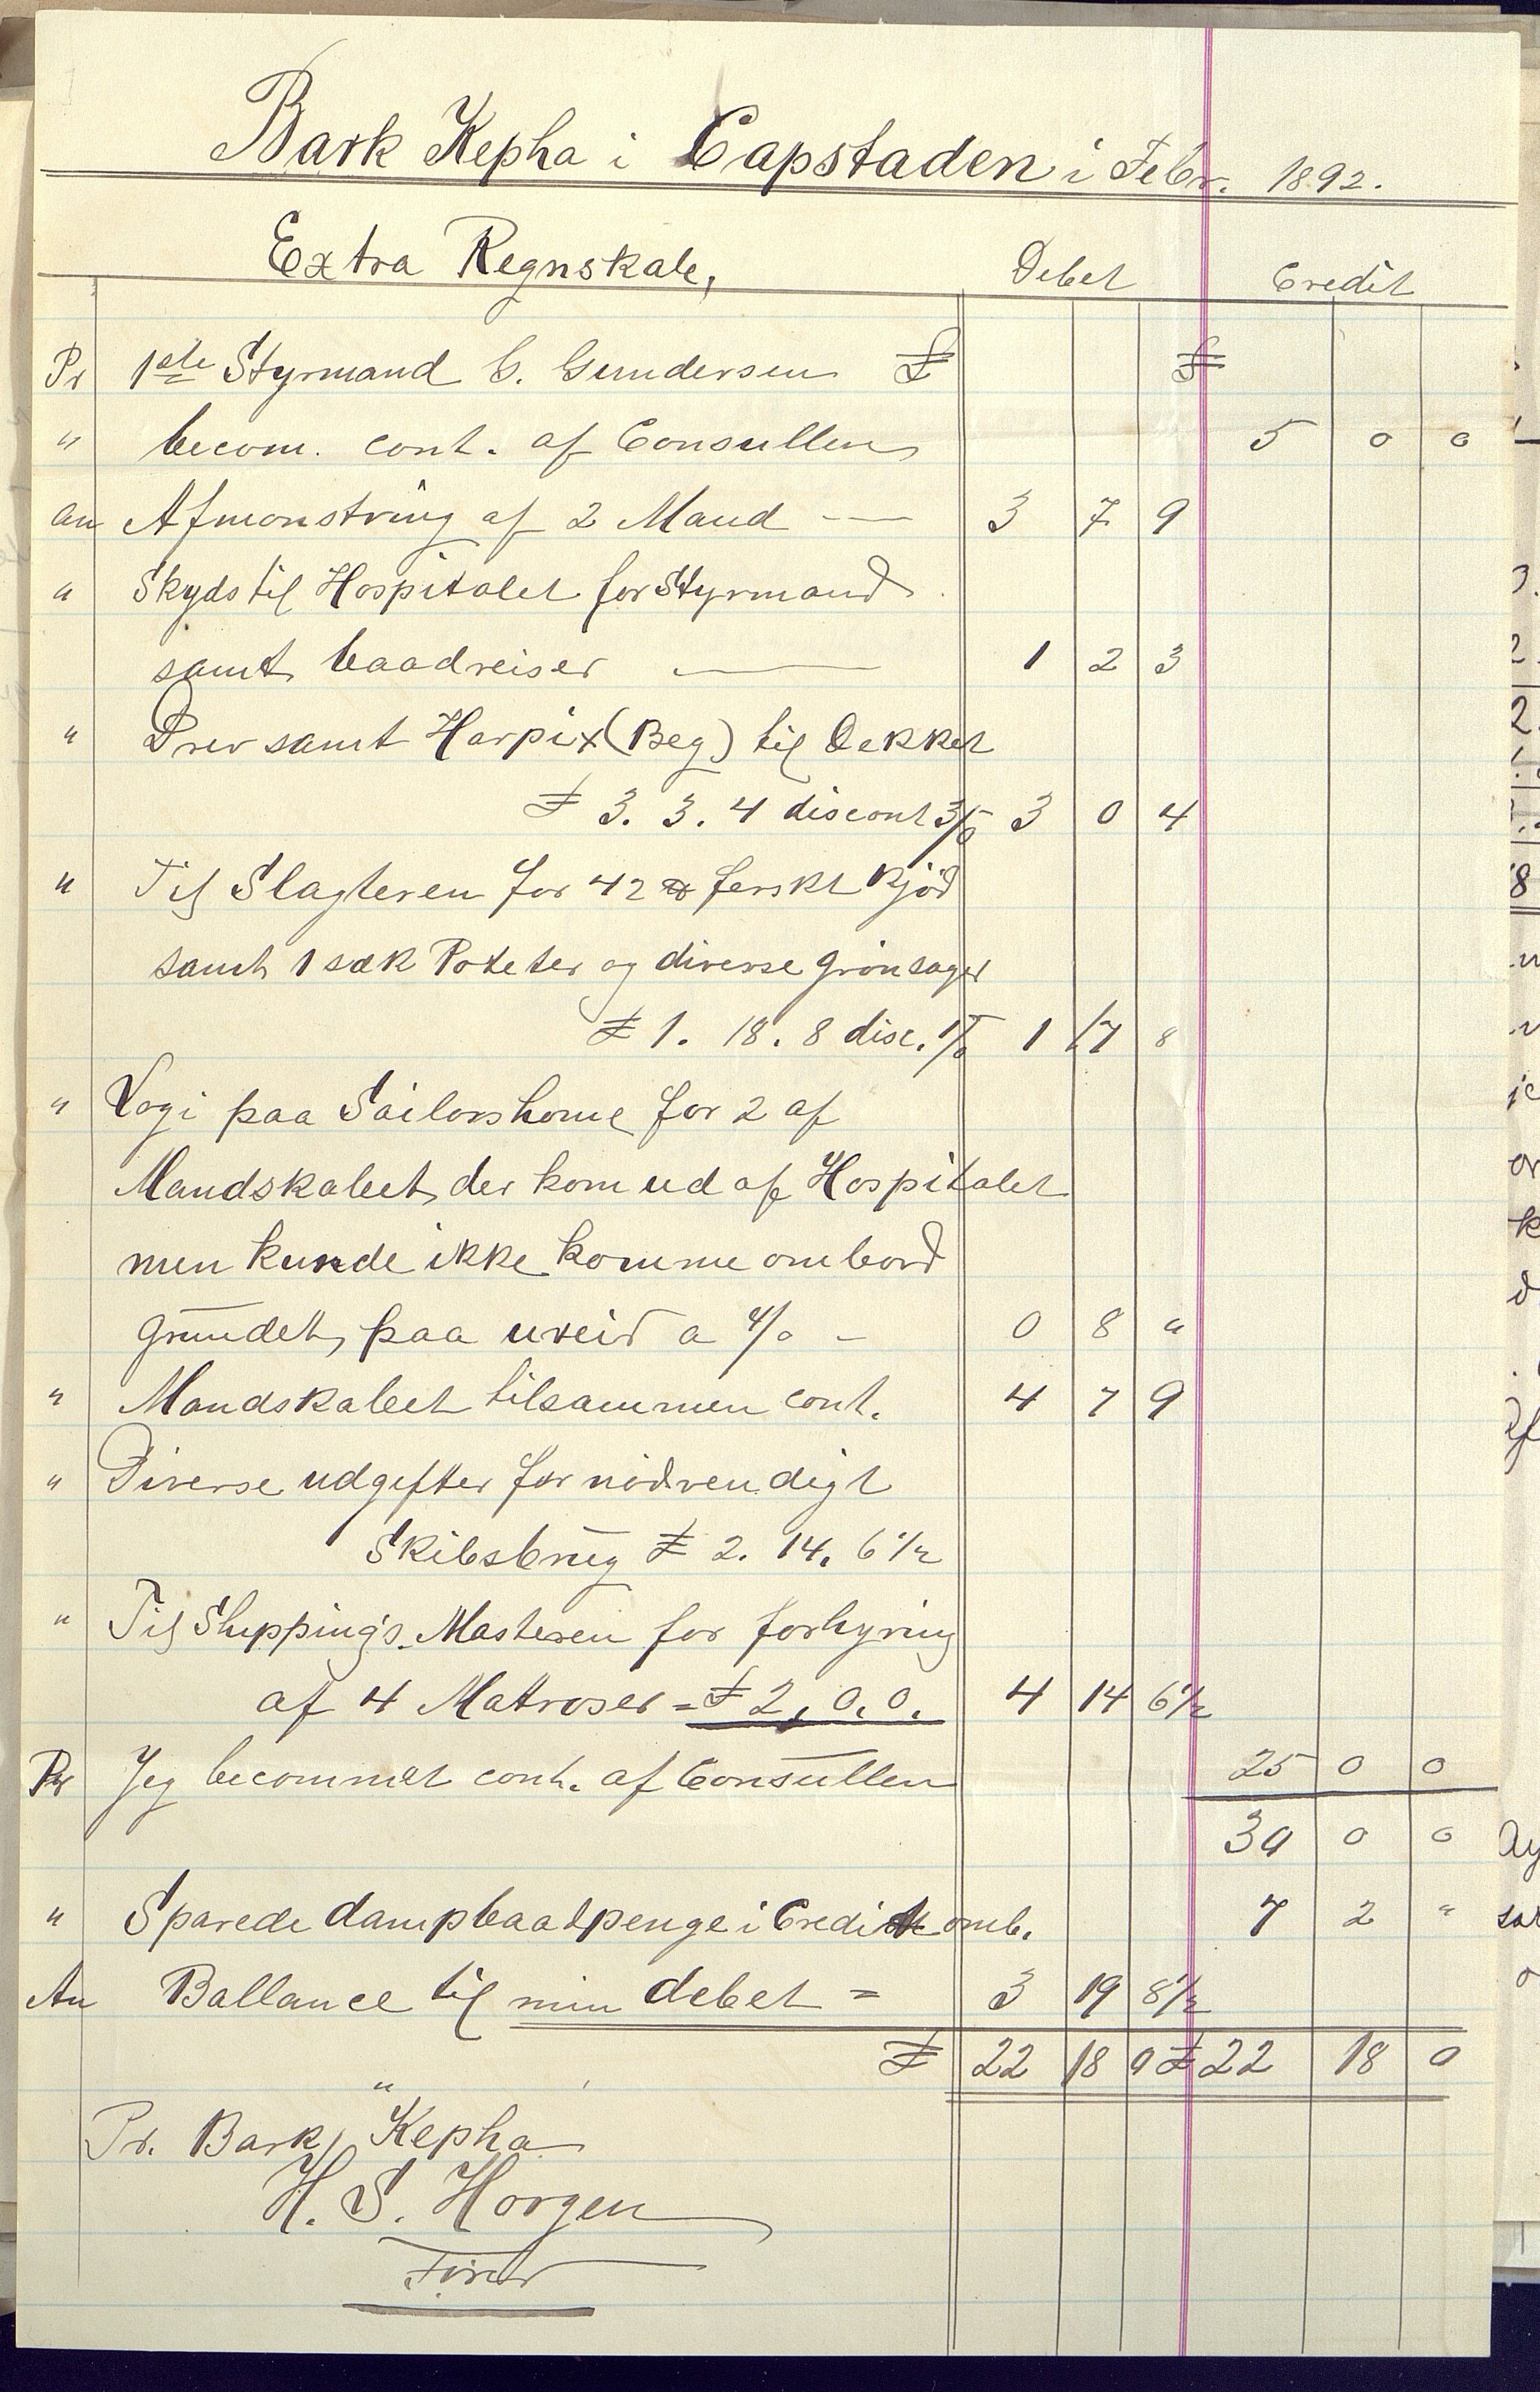 Bark Kepha i Capstaden i Febr. 1892.
Extra Regnskab, Debet Credit
Pr 1ste Styrmand C. Gundersen £ £
" becom. cont. af Consullen 5 0 0
An Afmonstring af 2 Mand — 3 7 9
" Skyds til Hospitalet for Styrmand
samt baadreiser — 1 2 3
" Drev samt Harpix (Beg) til Dekket
£ 3. 3. 4 discont 3/0 3 0 4
" Til Slagteren for 42 ℔ ferskt Kjöd
samt 1 sæk Poteter og diverse Grönsager
£ 1. 18. 8 disc. 1/0 1 17 8
" Logi paa Sailorshome for 2 af
Mandskabet, der kom ud af Hospitalet
men kunde ikke komme ombord
grundet, paa uveir a 4/0 - 0 8 "
" Mandskabet tilsammen cont. 4 7 9
" Diverse udgifter for nödvendigt
Skibsbrug £ 2. 14. 6 1/2
" Til Shipping's. Masteren for forhyring
af 4 Matroser = £ 2, 0. 0. 4 14 6 1/2
Pr Jeg becommet cont. af Consullen 25 0 0
30 0 0
" Sparede dampbaadpenge i Credit omb. 7 2 "
An Ballance til min debet = 3 19 8 1/2
£ 22 18 0 £ 22 18 0
Pr. Bark "Kepha
H. S. Horgen
Förer